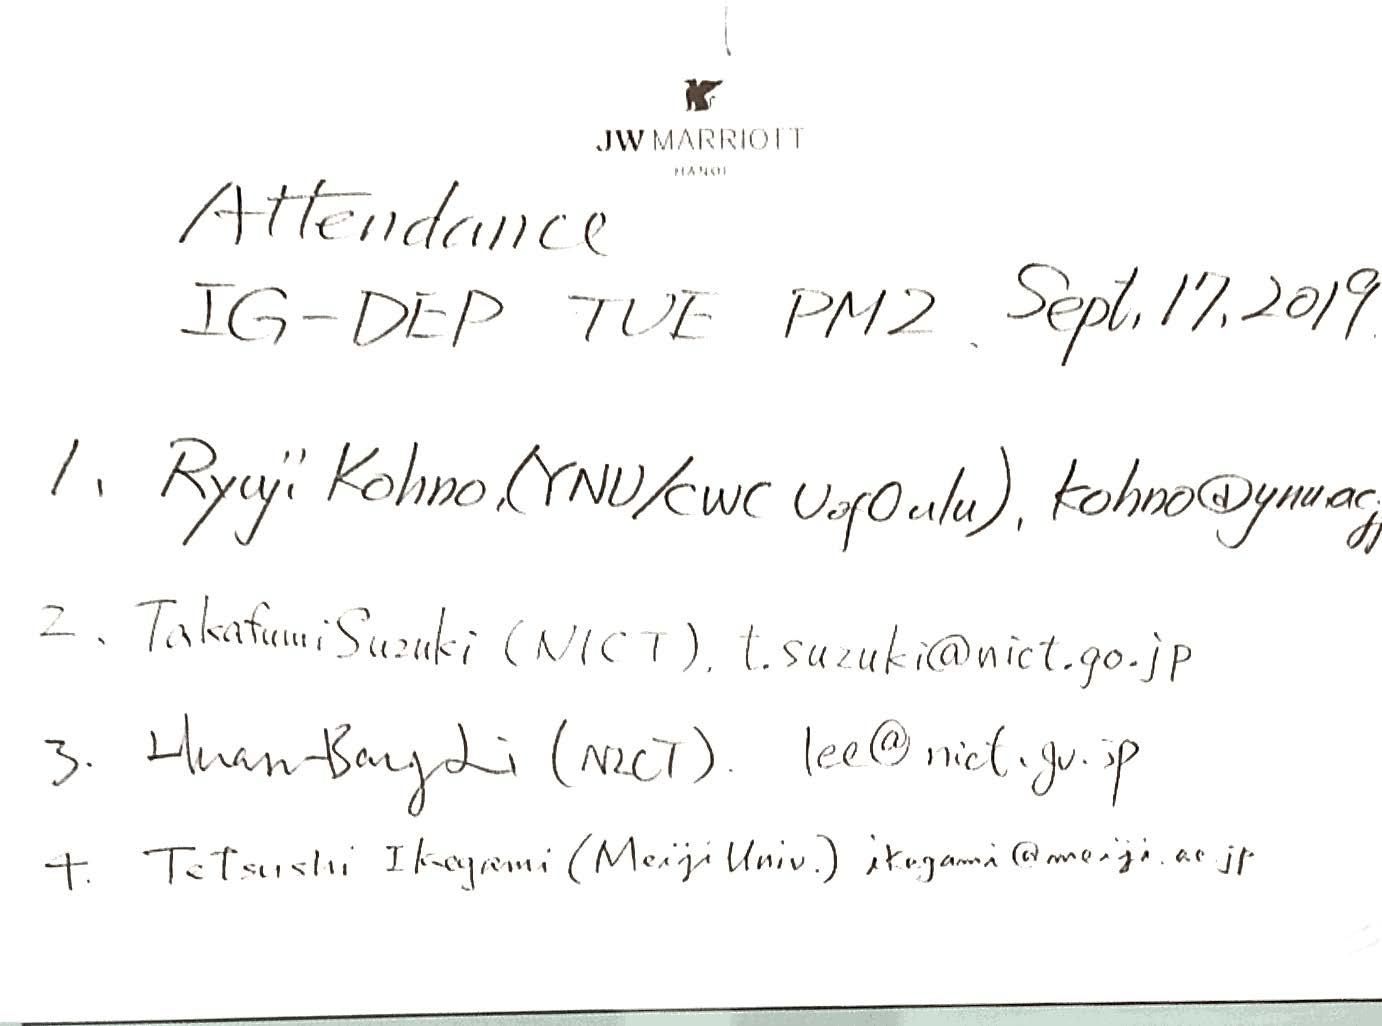 JW MARRIOTT
HANOI
Attendance
IG-DEP TUE PM2. Sept. 17, 2019.
1. Ryuji Kohno, (YNU/CWC UofOulu), kohno@ynu.ac.j
2. Takafumi Suzuki (NICT), t.suzuki@nict.go.jp
3. Huan-Bang Li (NICT). lee@nict.go.jp
4. Tetsushi Ikegami (Meiji Univ.) ikegami@meiji.ac.jp